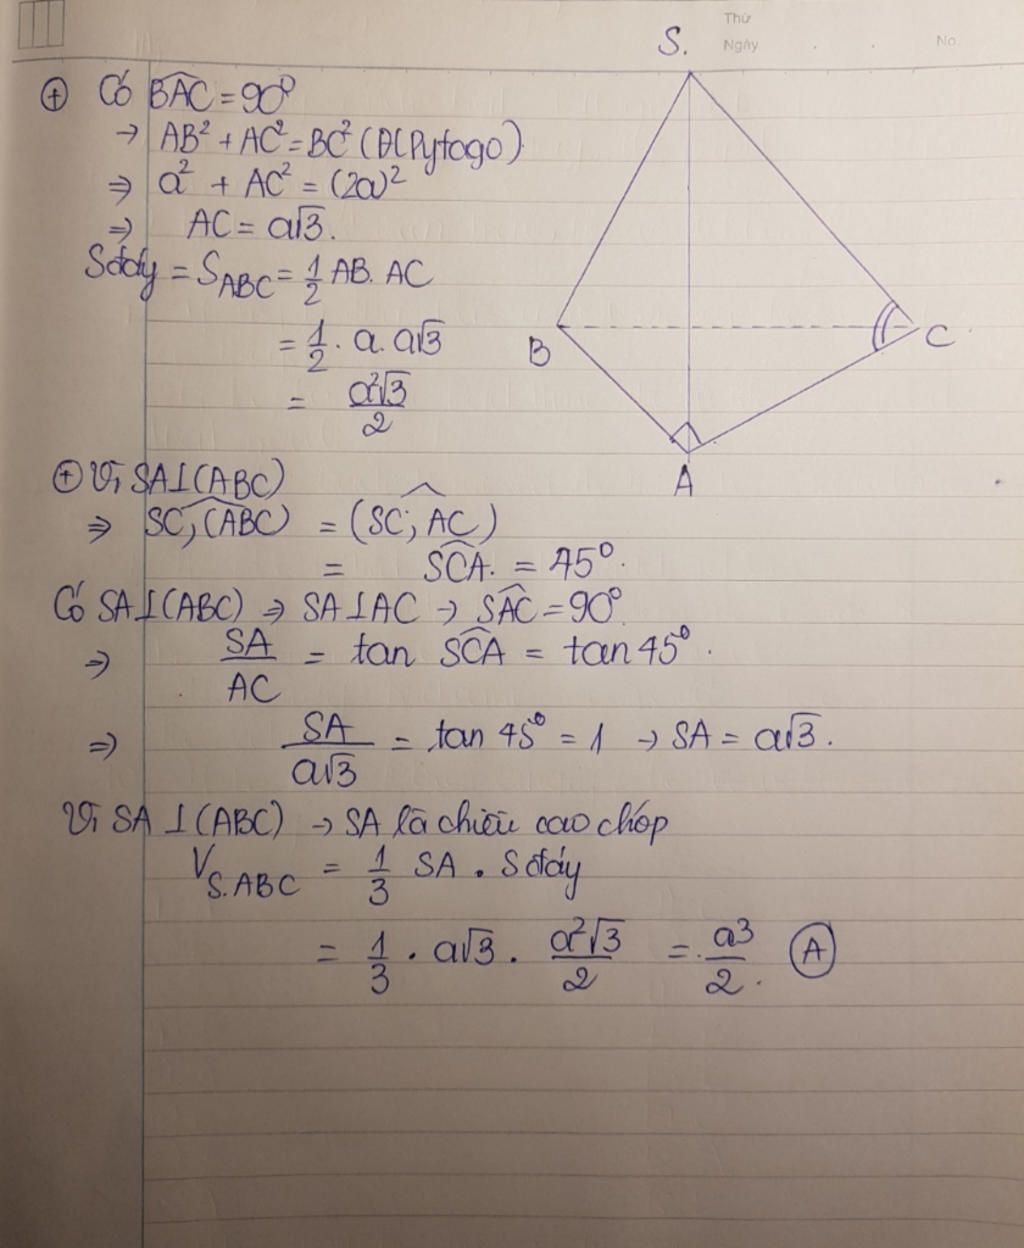 Thứ
Ngày . . No.
S.
⊕ Có $\widehat{BAC} = 90^0$
→ AB² + AC² = BC² (ĐL Pytago)
⇒ a² + AC² = (2a)²
⇒ AC = a√3.
Sđáy = $S_{ABC}$ = $\frac{1}{2}$ AB. AC
= $\frac{1}{2}$ . a. a√3
= $\frac{a^2\sqrt{3}}{2}$
B
C
A
⊕ Vì SA⊥(ABC)
⇒ $\widehat{SC, (ABC)}$ = $\widehat{(SC, AC)}$
= $\widehat{SCA}$. = 45⁰.
Có SA⊥(ABC) ⇒ SA⊥AC → $\widehat{SAC}$ = 90⁰.
⇒ $\frac{SA}{AC}$ = tan $\widehat{SCA}$ = tan 45⁰.
⇒ $\frac{SA}{a\sqrt{3}}$ = tan 45⁰ = 1 → SA = a√3.
Vì SA ⊥(ABC) → SA là chiều cao chóp
$V_{S.ABC}$ = $\frac{1}{3}$ SA . Sđáy
= $\frac{1}{3}$ . a√3 . $\frac{a^2\sqrt{3}}{2}$ = $\frac{a^3}{2}$. Ⓐ